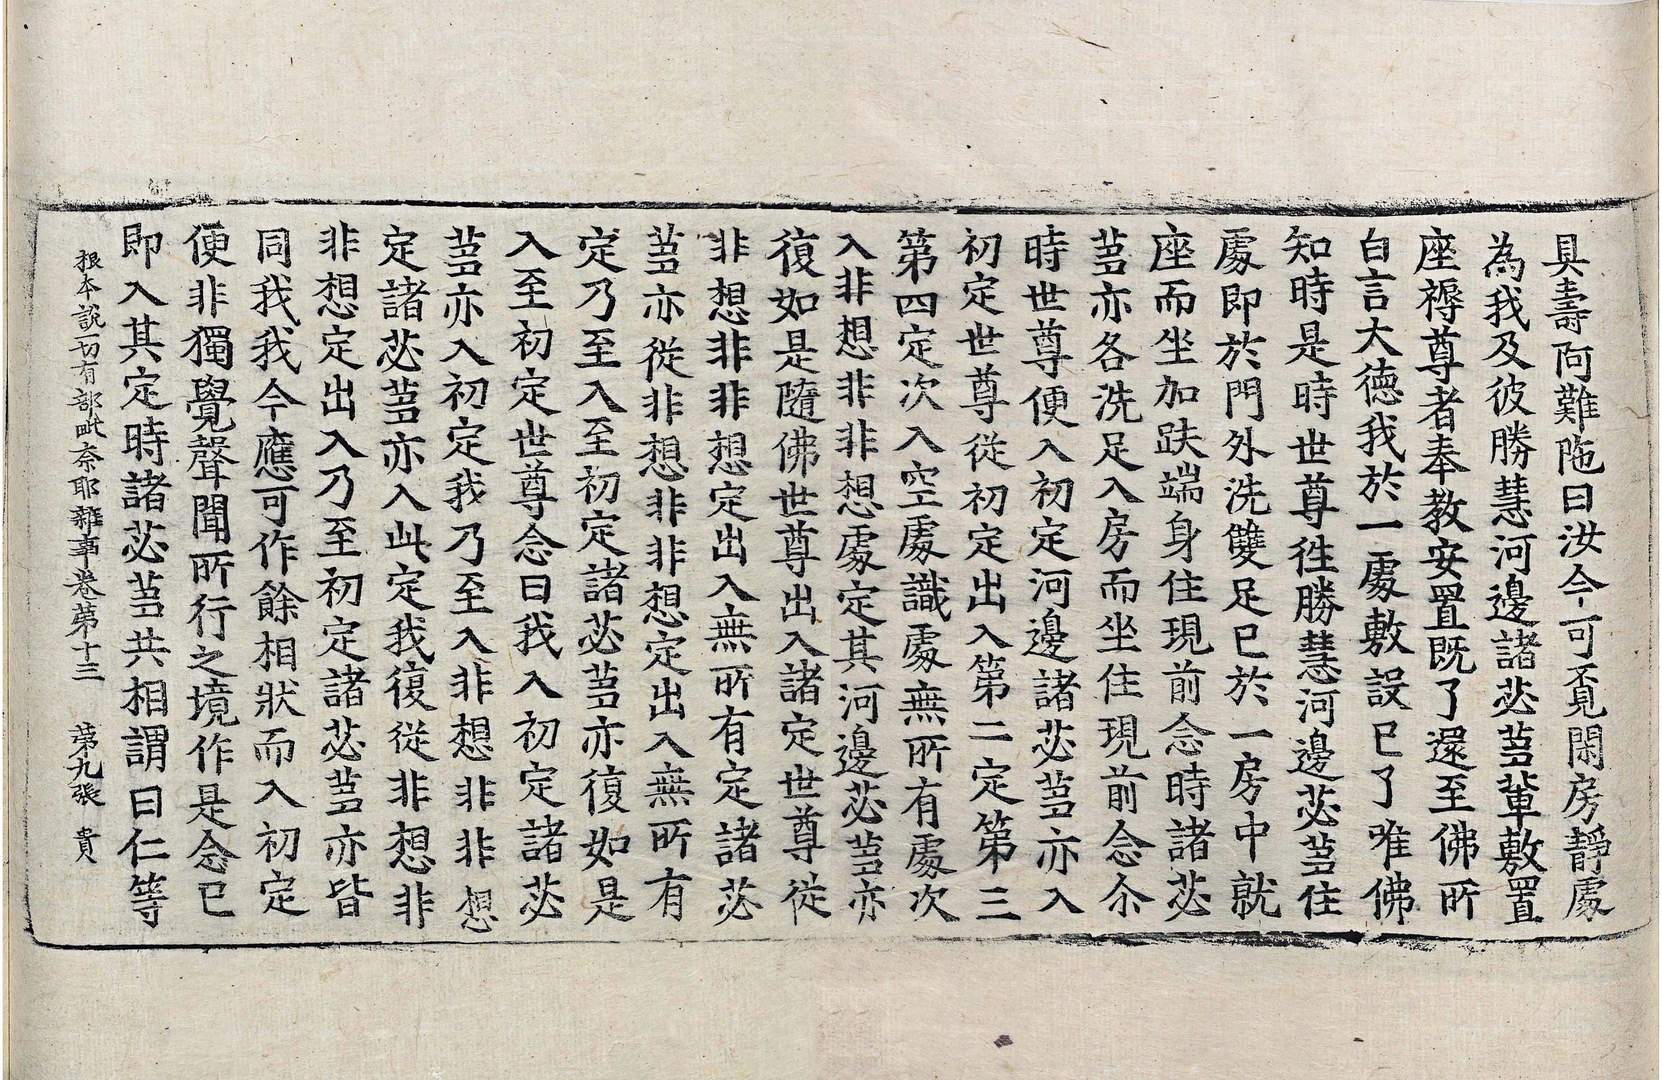 具壽阿難陁曰汝今可覔閑房靜處
為我及彼勝慧河邊諸苾蒭輩敷置
座褥尊者奉教安置既了還至佛所
白言大德我於一處敷設已了唯佛
知時是時世尊徃勝慧河邊苾蒭住
處即於門外洗雙足已於一房中就
座而坐加趺端身住現前念時諸苾
蒭亦各洗足入房而坐住現前念尒
時世尊便入初定河邊諸苾蒭亦入
初定世尊從初定出入第二定第三
第四定次入空處識處無所有處次
入非想非非想處定其河邊苾蒭亦
復如是隨佛世尊出入諸定世尊從
非想非非想定出入無所有定諸苾
蒭亦從非想非非想定出入無所有
定乃至入至初定諸苾蒭亦復如是
入至初定世尊念曰我入初定諸苾
蒭亦入初定我乃至入非想非非想
定諸苾蒭亦入此定我復從非想非
非想定出入乃至初定諸苾蒭亦皆
同我我今應可作餘相狀而入初定
便非獨覺聲聞所行之境作是念已
即入其定時諸苾蒭共相謂曰仁等
根本說一切有部毗奈耶雜事卷第十三 第九張 貴